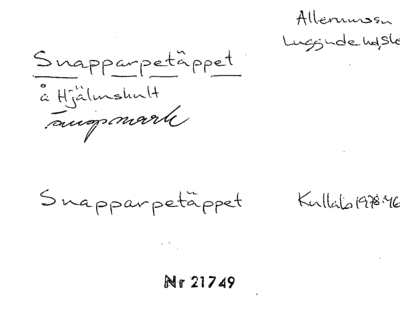 Allerumssn
Luggude hd, Sk
Snapparpetäppet
å Hjälmshult
ängsmark
Snapparpetäppet
Kullabo 1978:46
Nr 21749